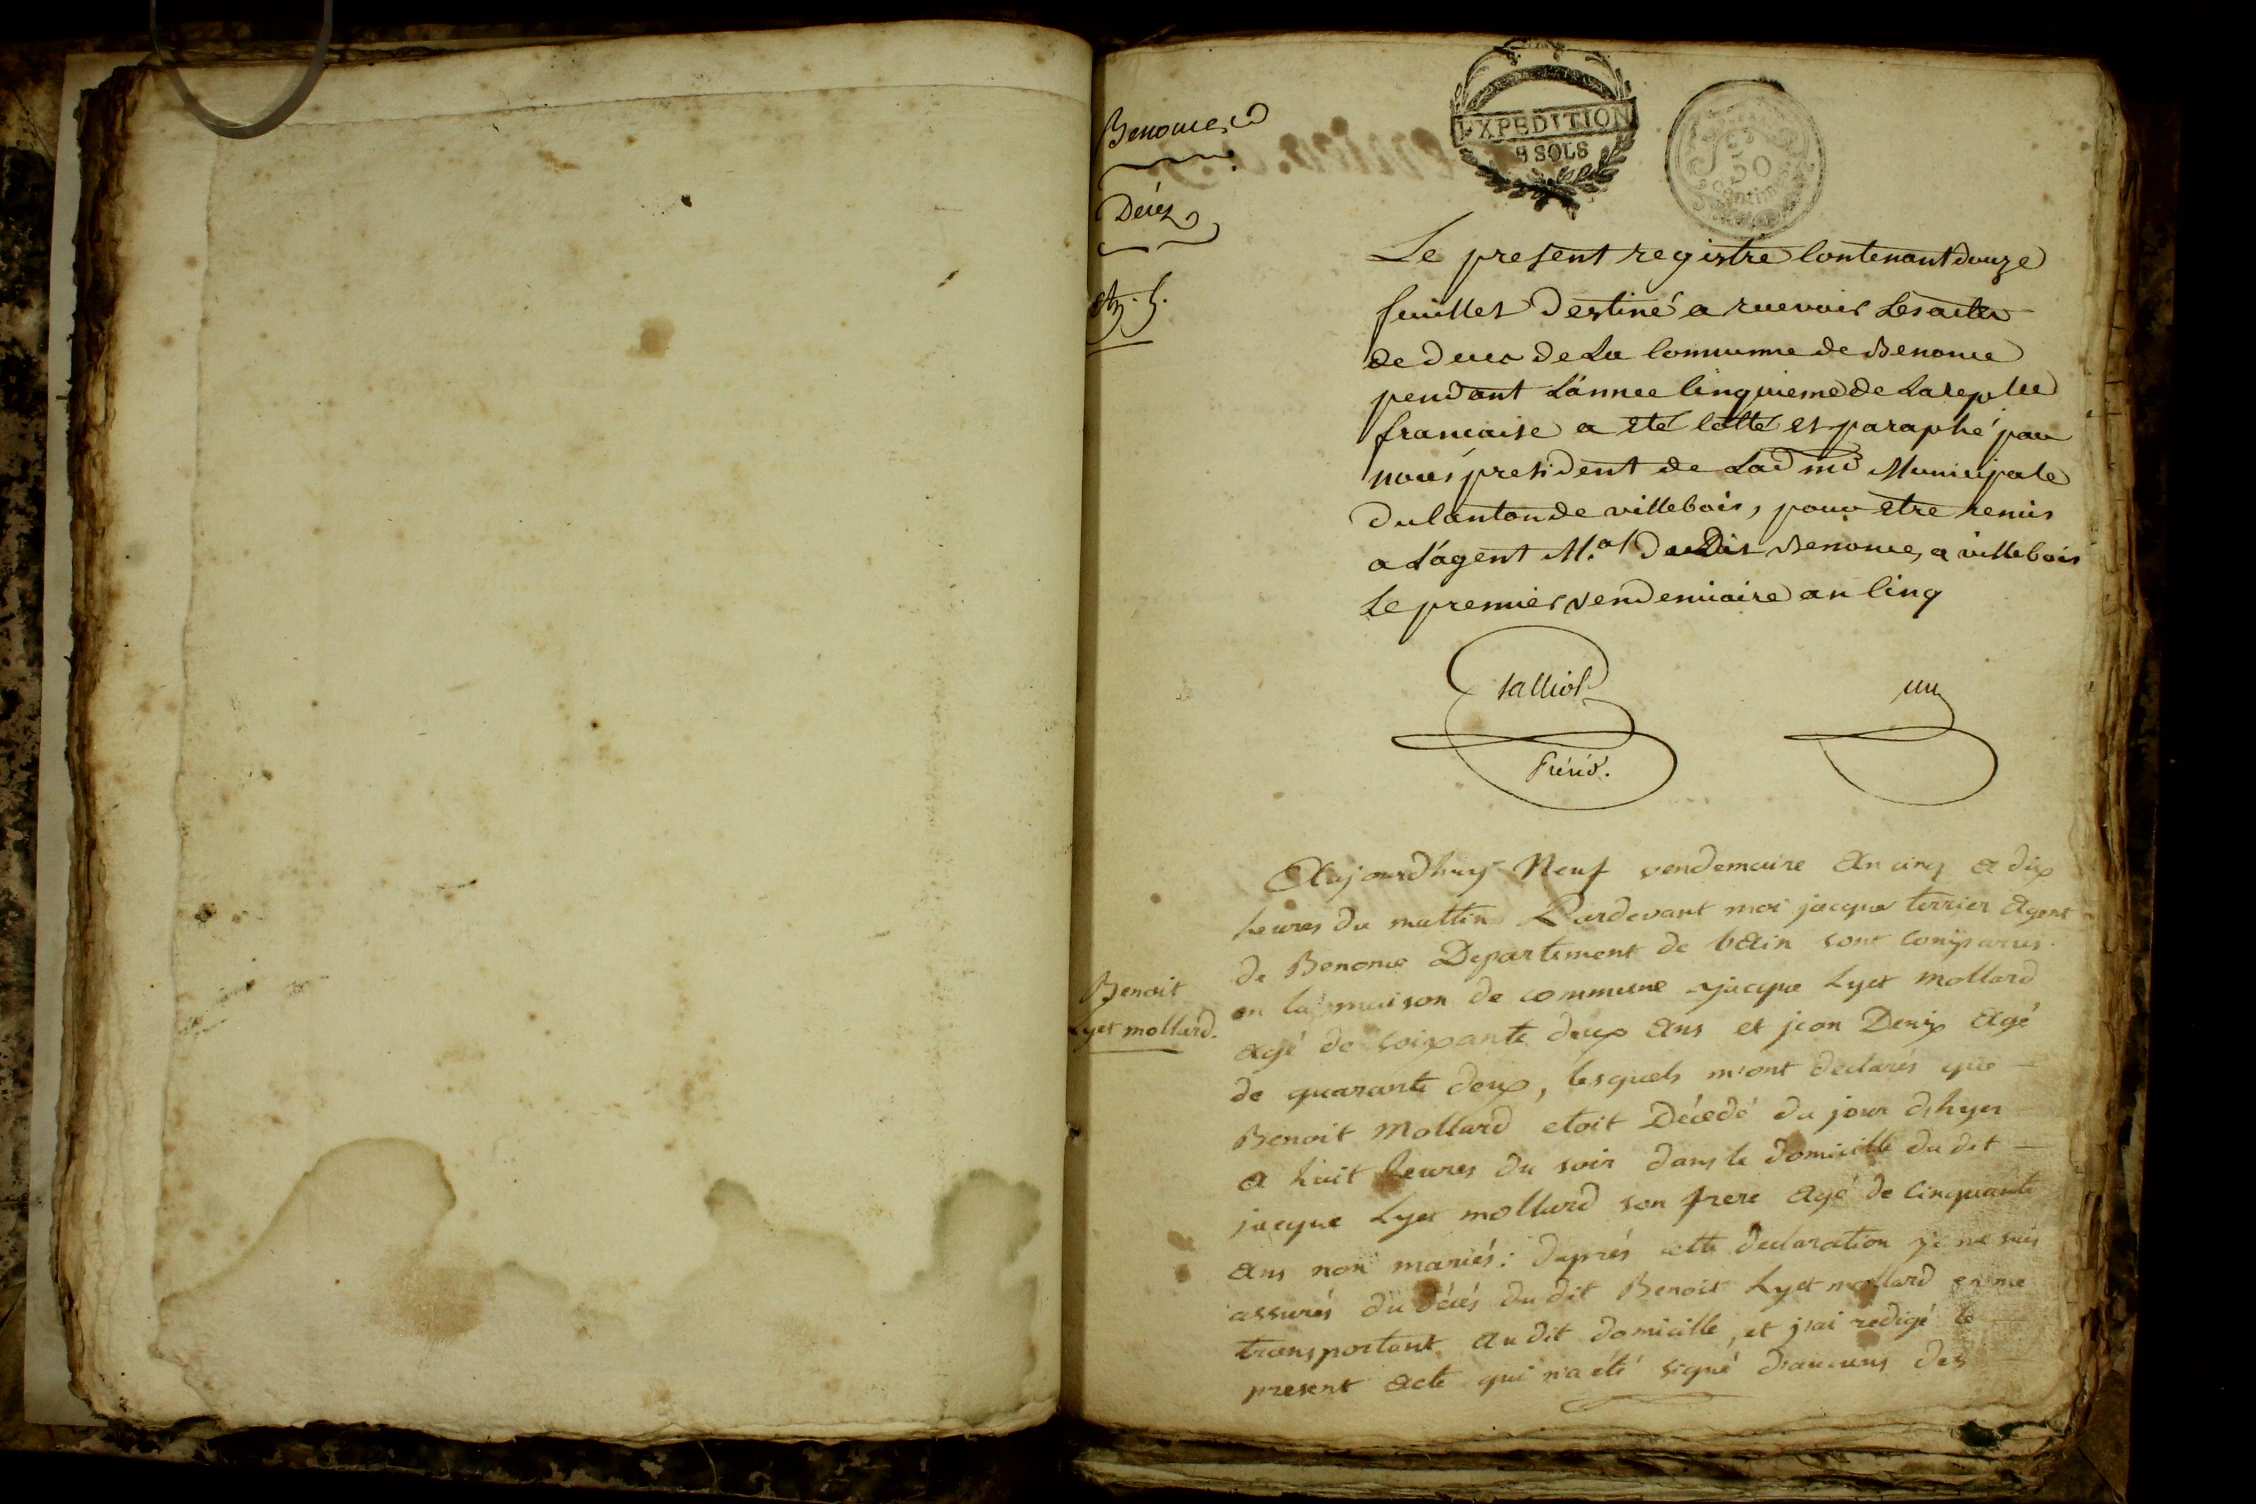 Benonce
Décès
EXPEDITION
9 SOLS
50
Centimes
Le present registre Contenant douze
feuillet Destiné a recevoir Les actes
de deces de La Commune de Benonce
pendant L'année Cinquieme de La repu
francaise a eté Cotté et paraphé par
nous president de L'admon Municipale
du Canton de villebois, pour etre remis
a L'agent M.al du Dit Benonce, a villebois
Le premier vendemiaire an Cinq
un
présid.
Aujourdhuy Neuf vendemaire An cinq a dix
heures du mattin Pardevant moi jacque terrier Agent
de Benonce Departement de lAin sont comparus
en la maison de commune jacque Lyet mollard
Agé de soixante deux Ans et jean Denix Agé
de quarante deux, lesquels m'ont declarés que
Benoit Mollard etoit Décedé du jour dhyer
a huit heures du soir dans le domicille du dit
jacque Lyet mollard son frere Agé de Cinquante
Ans non mariés: daprés cette declaration je me suis
assurés du décés du dit Benoit Lyet mollard en me
transportant Au dit domicille, et j'ai redigé le
present Acte qui n'a été signé d'aucuns des
Benoit
Lyet mollard.